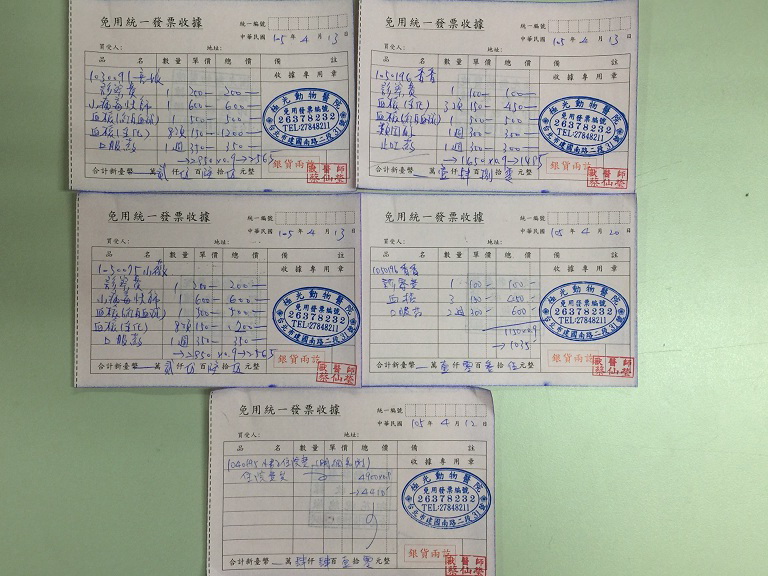 免用統一發票收據
統一編號
中華民國 105 年 4 月 13 日
買受人: 地址:
品 名 數量 單價 總價 備 註
收據專用章
診察費 1 200- 200-
1 600- 600-
1 500 500
血檢(生化) 8項 150- 1200-
口服藥 1週 350 350
→2850×0.9→2565
合計新臺幣 萬 貳 仟 伍 百 陸 拾 伍 元整
極光動物醫院
免用發票編號
26378232
TEL:27848211
台北市建國南路二段31號
銀貨兩訖
獸醫師
蔡仙瑩
免用統一發票收據
統一編號
中華民國 105 年 4 月 13 日
買受人: 地址:
品 名 數量 單價 總價 備 註
收據專用章
1050196 香香
診察費 1 100- 100-
血檢(生化) 3項 150- 450-
1 500 500
1 300 300
1週 300 300
→1650×0.9→1485
合計新臺幣 萬 壹 仟 肆 百 捌 拾 元整
極光動物醫院
免用發票編號
26378232
TEL:27848211
台北市建國南路二段31號
銀貨兩訖
獸醫師
蔡仙瑩
免用統一發票收據
統一編號
中華民國 105 年 4 月 13 日
買受人: 地址:
品 名 數量 單價 總價 備 註
收據專用章
診察費 1 200- 200-
1 600- 600-
1 500 500
血檢(生化) 8項 150- 1200-
口服藥 1週 350 350
→2850×0.9→2565
合計新臺幣 萬 貳 仟 伍 百 陸 拾 伍 元整
極光動物醫院
免用發票編號
26378232
TEL:27848211
台北市建國南路二段31號
銀貨兩訖
獸醫師
蔡仙瑩
免用統一發票收據
統一編號
中華民國 105 年 4 月 20 日
買受人: 地址:
品 名 數量 單價 總價 備 註
收據專用章
1050196 香香
診察費 1 100- 100-
血檢 3 150- 450-
口服藥 2週 300- 600
1150×0.9
→1035
合計新臺幣 萬 壹 仟 零 百 參 拾 伍 元整
極光動物醫院
免用發票編號
26378232
TEL:27848211
台北市建國南路二段31號
銀貨兩訖
獸醫師
蔡仙瑩
免用統一發票收據
統一編號
中華民國 105 年 4 月 12 日
買受人: 地址:
品 名 數量 單價 總價 備 註
收據專用章
住院
4900×0.9
→4410
合計新臺幣 萬 肆 仟 肆 百 壹 拾 零 元整
極光動物醫院
免用發票編號
26378232
TEL:27848211
台北市建國南路二段31號
銀貨兩訖
獸醫師
蔡仙瑩